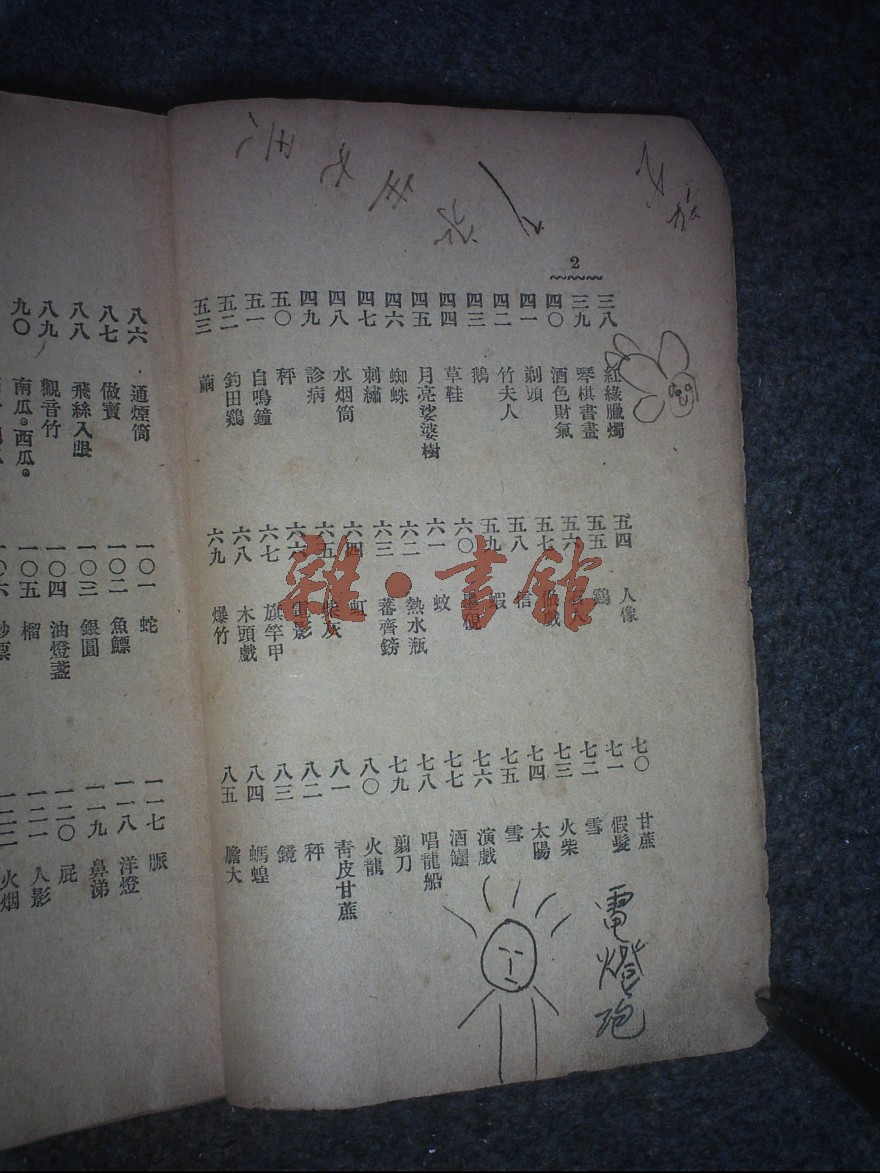 2
三八 紅綠臘燭
三九 琴棋書畫
四〇 酒色財氣
四一 剃頭
四二 竹夫人
四三 鵝
四四 草鞋
四五 月亮娑婆樹
四六 蜘蛛
四七 刺繡
四八 水烟筒
四九 診病
五〇 秤
五一 自鳴鐘
五二 釣田鷄
五三 繭
五四 人像
五五 鷄
五六
五七
五八 信
五九 蝦
六〇
六一 蚊
六二 熱水瓶
六三 蕃薺鎊
六四 虹
六五 灰
六六 影
六七 旗竿甲
六八 木頭戲
六九 爆竹
七〇 甘蔗
七一 假髮
七二 雪
七三 火柴
七四 太陽
七五 雪
七六 演戲
七七 酒罎
七八 唱龍船
七九 剪刀
八〇 火龍
八一 青皮甘蔗
八二 秤
八三 鏡
八四 螞蝗
八五 膽大
電燈砲
雜·書館
八六 通煙筒
八七 做寶
八八 飛絲入眼
八九 觀音竹
九〇 南瓜。西瓜。
一〇一 蛇
一〇二 魚鰾
一〇三 銀圓
一〇四 油燈盞
一〇五 榴
一〇六
一一七 脈
一一八 洋燈
一一九 鼻涕
一二〇 屁
一二一 人影
一二二 火烟